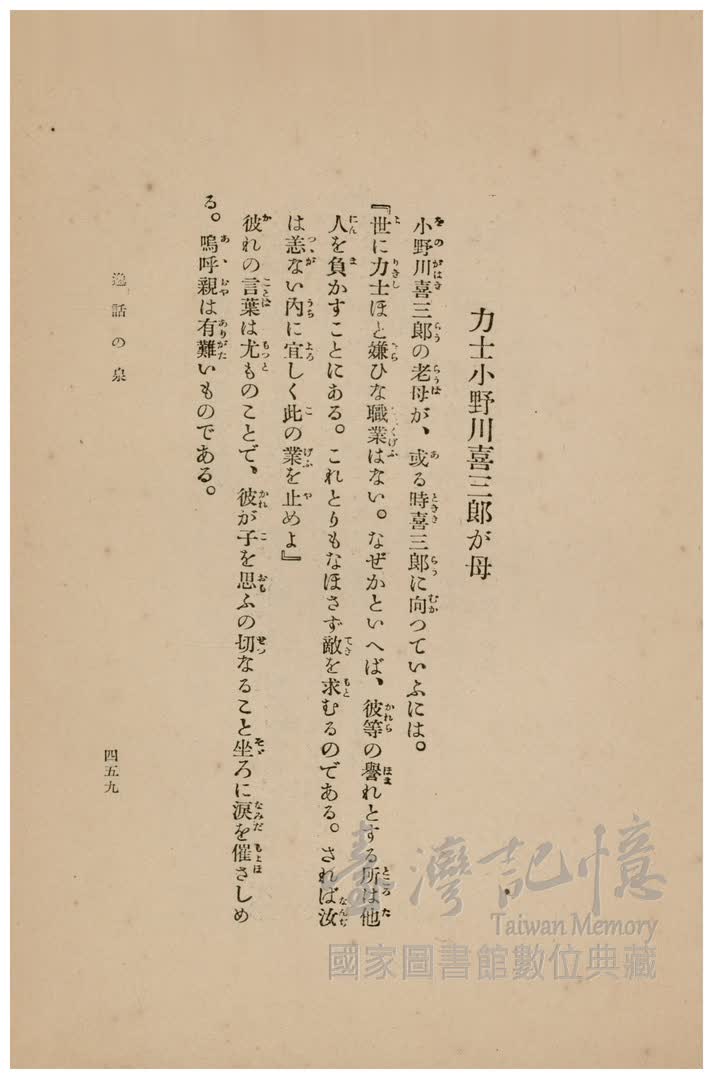 力士小野川喜三郎が母
小野川喜三郎の老母が、或る時喜三郎に向つていふには。
『世に力士ほど嫌ひな職業はない。なぜかといへば、彼等の譽れとする所は他
人を負かすことにある。これとりもなほさず敵を求むるのである。されば汝
は恙ない內に宜しく此の業を止めよ』
彼れの言葉は尤ものことで、彼が子を思ふの切なること坐ろに淚を催さしめ
る。嗚呼親は有難いものである。
逸話の泉
四五九
臺灣記憶
Taiwan Memory
國家圖書館數位典藏